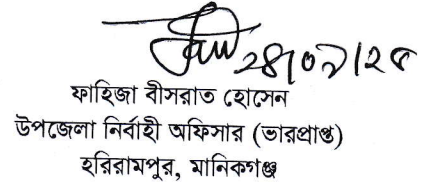 ২৪/০৯/২৫
ফাহিজা বীসরাত হোসেন
উপজেলা নির্বাহী অফিসার (ভারপ্রাপ্ত)
হরিরামপুর, মানিকগঞ্জ